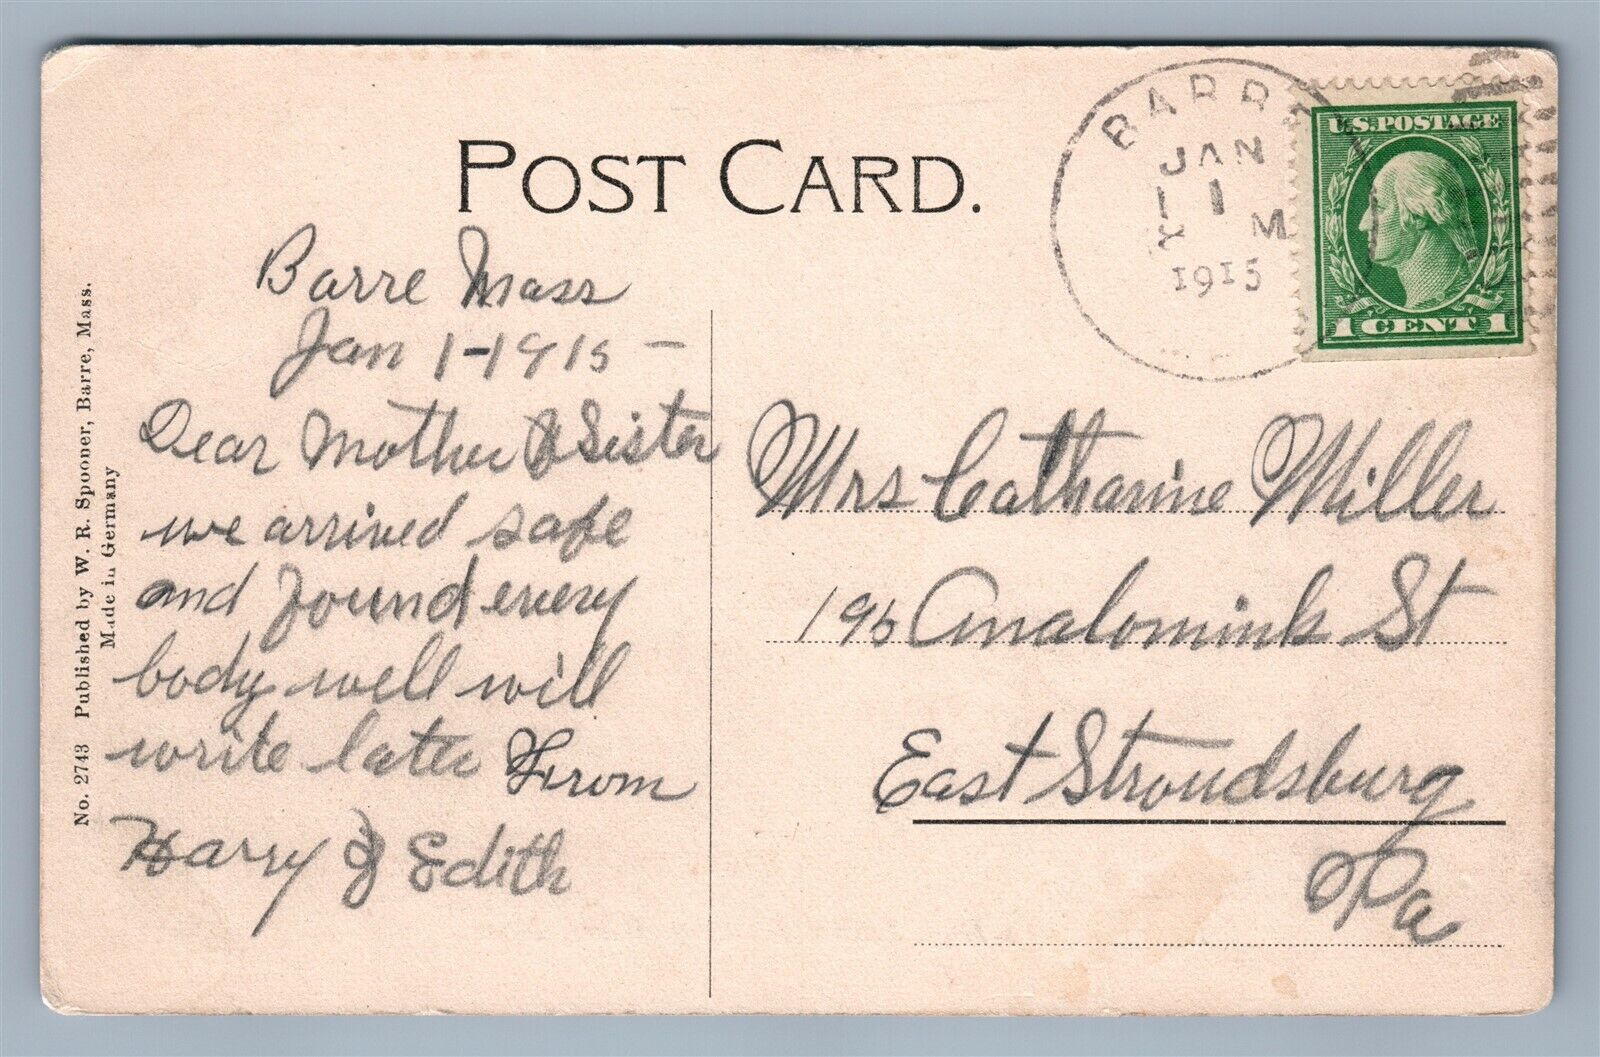 POST CARD.
BARRE
JAN
1
M
1915
U.S.POSTAGE
1 CENT 1
Barre Mass
Jan 1-1915 -
Dear Mother & Sister
we arrived safe
and found every
body well will
write later From
Harry & Edith
Mrs Catharine Miller
196 Analomink St
East Stroudsburg
Pa
No. 2743 Published by W. R. Spooner, Barre, Mass.
Made in Germany